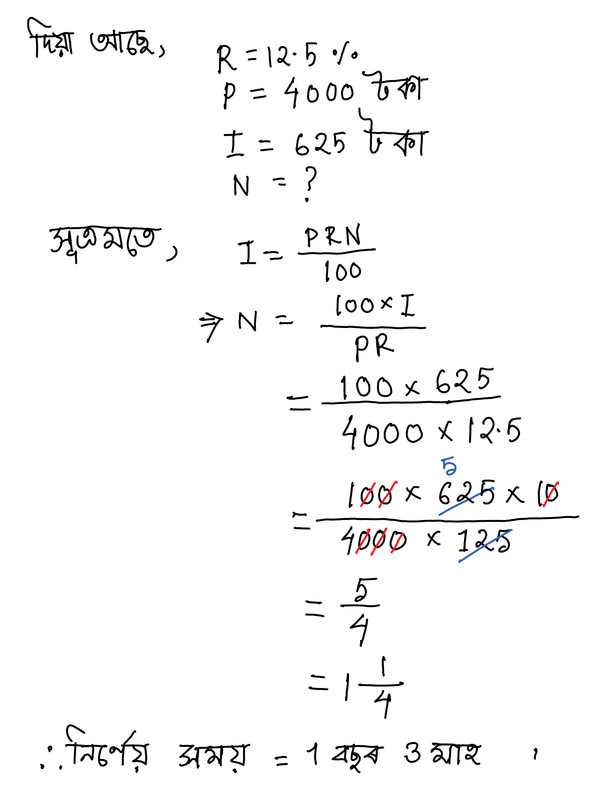 দিয়া আছে, R = 12.5 %
P = 4000 টকা
I = 625 টকা
N = ?
সূত্ৰমতে, I = PRN / 100
⇒ N = 100 × I / PR
= 100 × 625 / 4000 × 12.5
5
= 100 × 625 × 10 / 4000 × 125
= 5/4
= 1 1/4
∴ নিৰ্ণেয় সময় = 1 বছৰ 3 মাহ ,